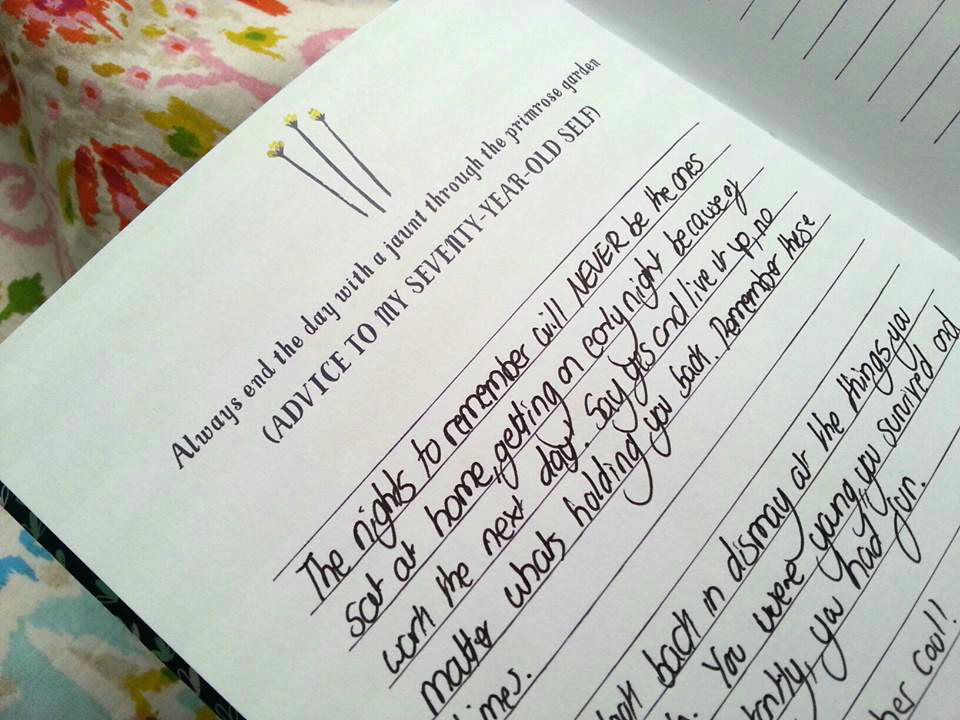 Always end the day with a jaunt through the primrose garden
(ADVICE TO MY SEVENTY-YEAR-OLD SELF)
The nights to remember will NEVER be the ones
sat at home, getting an early night because of
work the next day. Say yes and live it up, no
matter whats holding you back. Remember these
times.
look back in dismay at the things you
You were young, you survived and
you had fun.
cool!